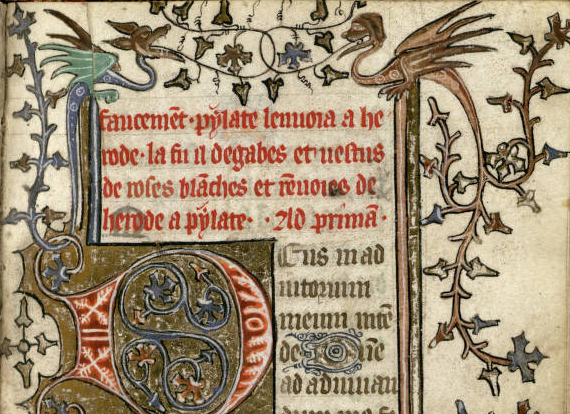 faucemēt · pylate lenuoia a he
rode · la fu il degabes et uestus
de roses blāches et rēuoies de
herode a pylate · · Ad primā ·
Eus in ad
iutorium
meum intē
de · Dñe
ad adiuuan